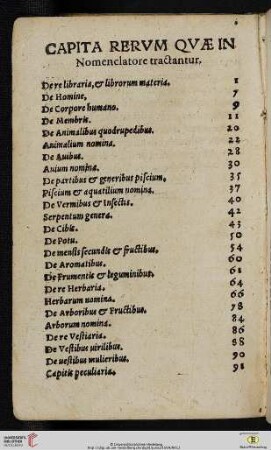 CAPITA RERVM QVÆ IN
Nomenclatore tractantur.
De re libraria, & librorum materia. 1
De Homine, 7
De Corpore humano. 9
De Membris. 11
De Animalibus quadrupedibus. 20
Animalium nomina. 22
De Auibus. 28
Auium nomina. 30
De partibus & generibus piscium. 35
Piscium & aquatilium nomina. 37
De Vermibus & Insectis. 40
Serpentum genera. 42
De Cibis. 43
De Potu. 50
De mensis secundis & fructibus. 54
De Aromatibus. 60
De Frumentis & leguminibus. 61
De re Herbaria. 64
Herbarum nomina. 66
De Arboribus & Fructibus. 78
Arborum nomina. 84
De re Vestiaria. 86
De Vestibus uirilibus. 88
De uestibus mulieribus. 90
Capitis peculiaria. 91